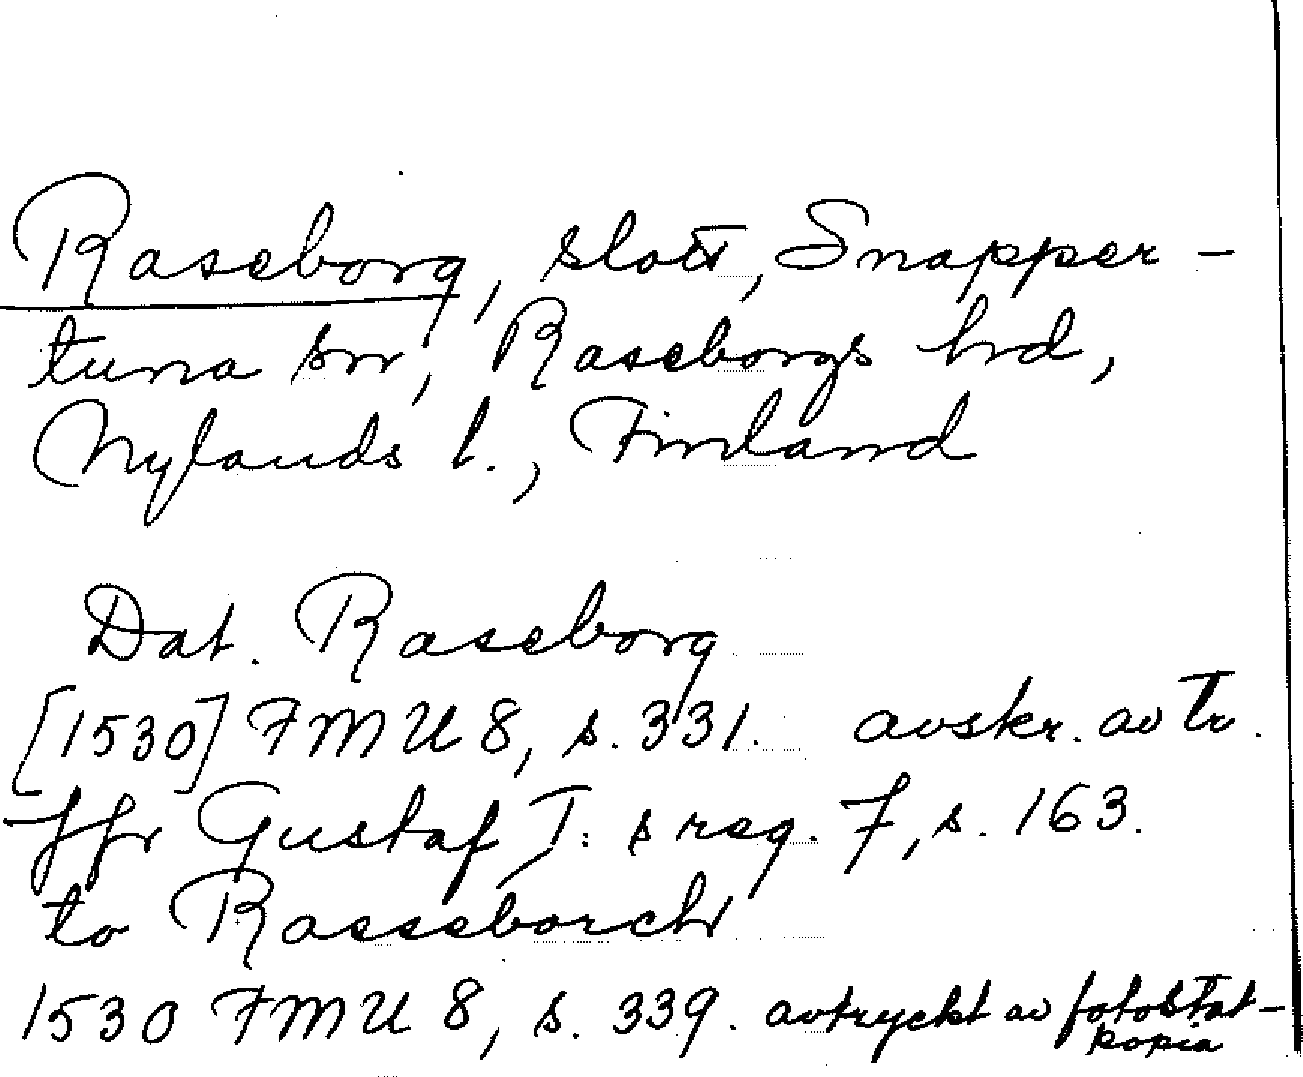 Raseborg, slott, Snapper-
tuna sn, Raseborgs hrd,
Nylands l., Finland
Dat. Raseborg
[1530] FMU 8, s. 331. avskr. av tr.
jfr Gustaf I:s reg. 7, s. 163.
to Rasseborch
1530 FMU 8, s. 339. avtryckt av fotostat-
kopia